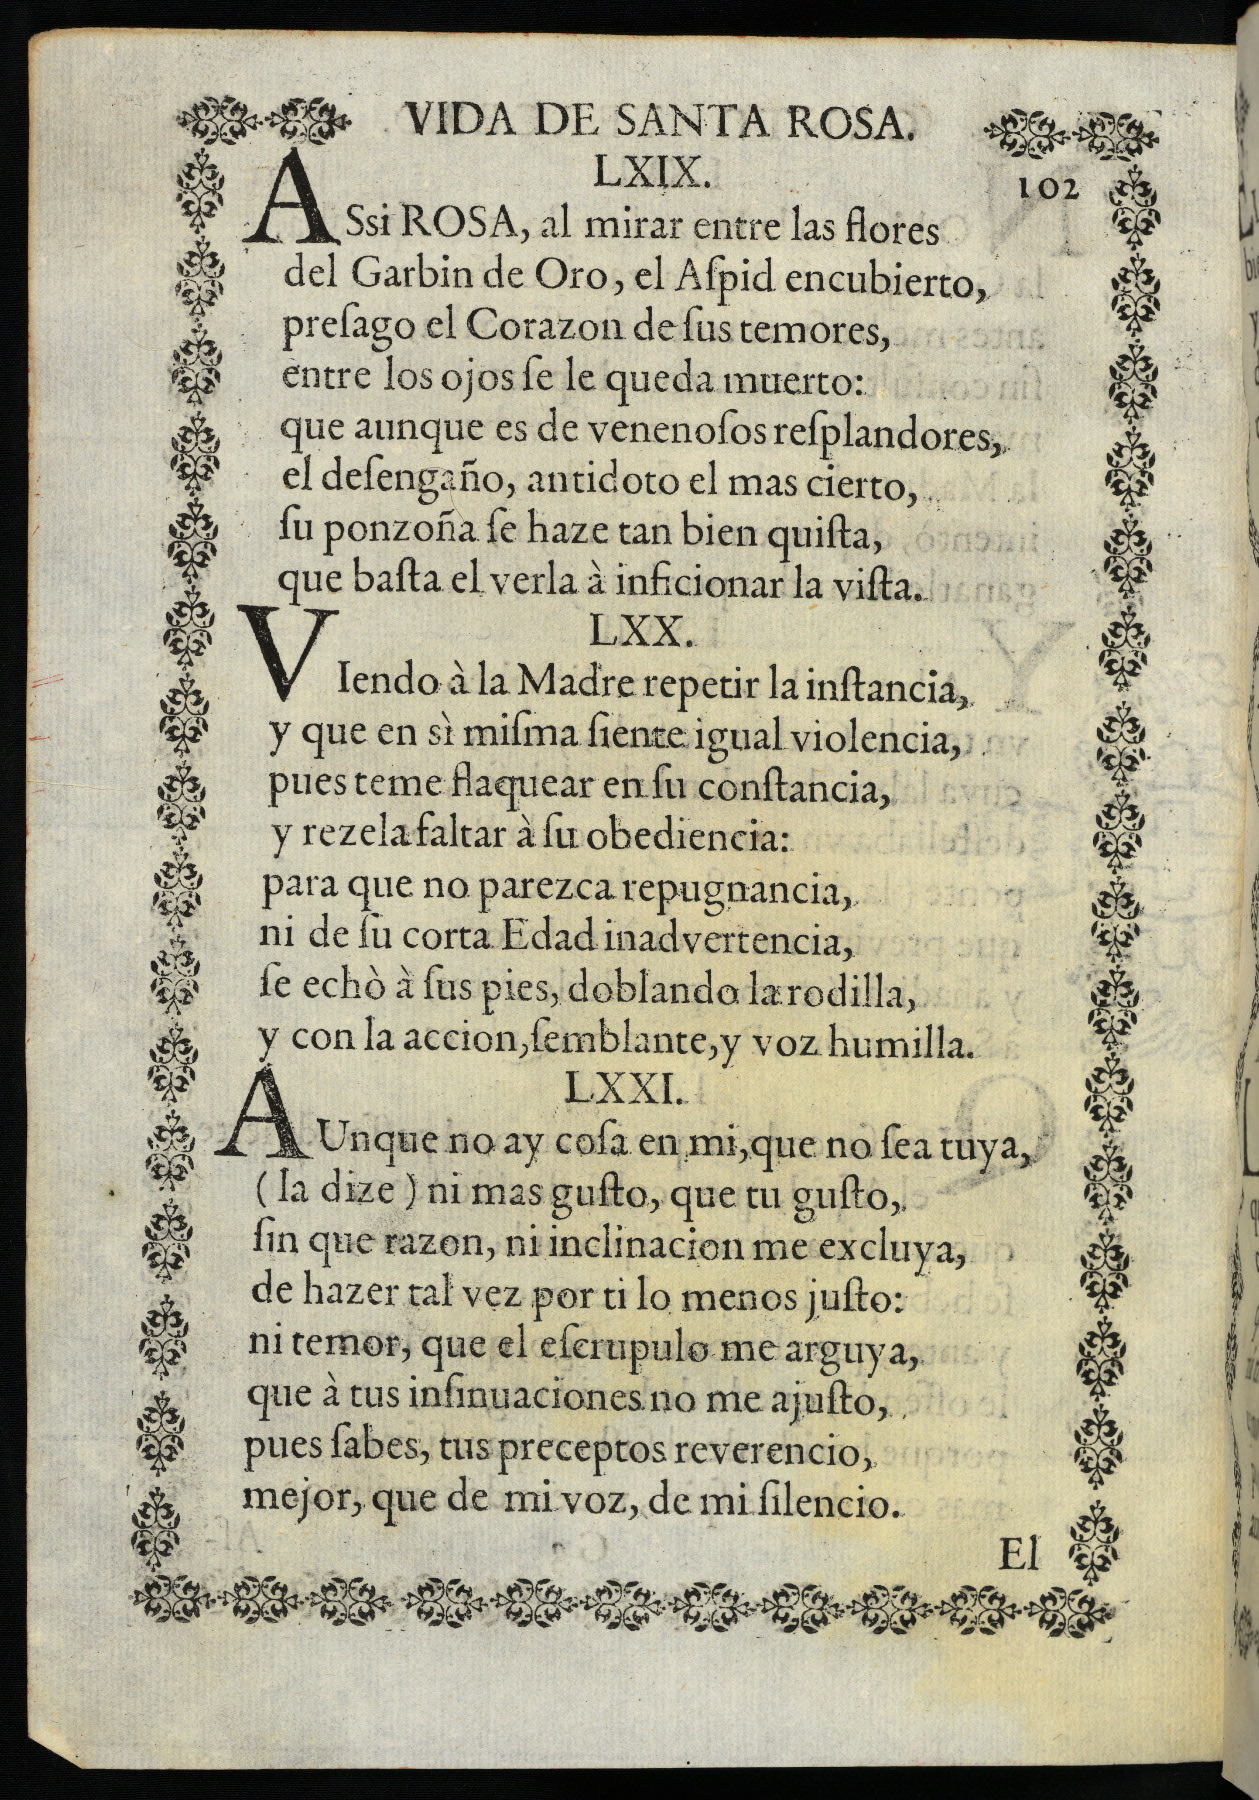 VIDA DE SANTA ROSA.
LXIX.
102
ASsi ROSA, al mirar entre las flores
del Garbin de Oro, el Aſpid encubierto,
preſago el Corazon de ſus temores,
entre los ojos ſe le queda muerto:
que aunque es de venenoſos reſplandores,
el deſengaño, antidoto el mas cierto,
ſu ponzoña ſe haze tan bien quiſta,
que baſta el verla à inficionar la viſta.
LXX.
VIendo à la Madre repetir la inſtancia,
y que en sì miſma ſiente igual violencia,
pues teme flaquear en ſu conſtancia,
y rezela faltar à ſu obediencia:
para que no parezca repugnancia,
ni de ſu corta Edad inadvertencia,
ſe echò à ſus pies, doblando la rodilla,
y con la accion, ſemblante, y voz humilla.
LXXI.
AUnque no ay coſa en mi, que no ſea tuya,
( la dize ) ni mas guſto, que tu guſto,
ſin que razon, ni inclinacion me excluya,
de hazer tal vez por ti lo menos juſto:
ni temor, que el eſcrupulo me arguya,
que à tus inſinuaciones no me ajuſto,
pues ſabes, tus preceptos reverencio,
mejor, que de mi voz, de mi ſilencio.
El